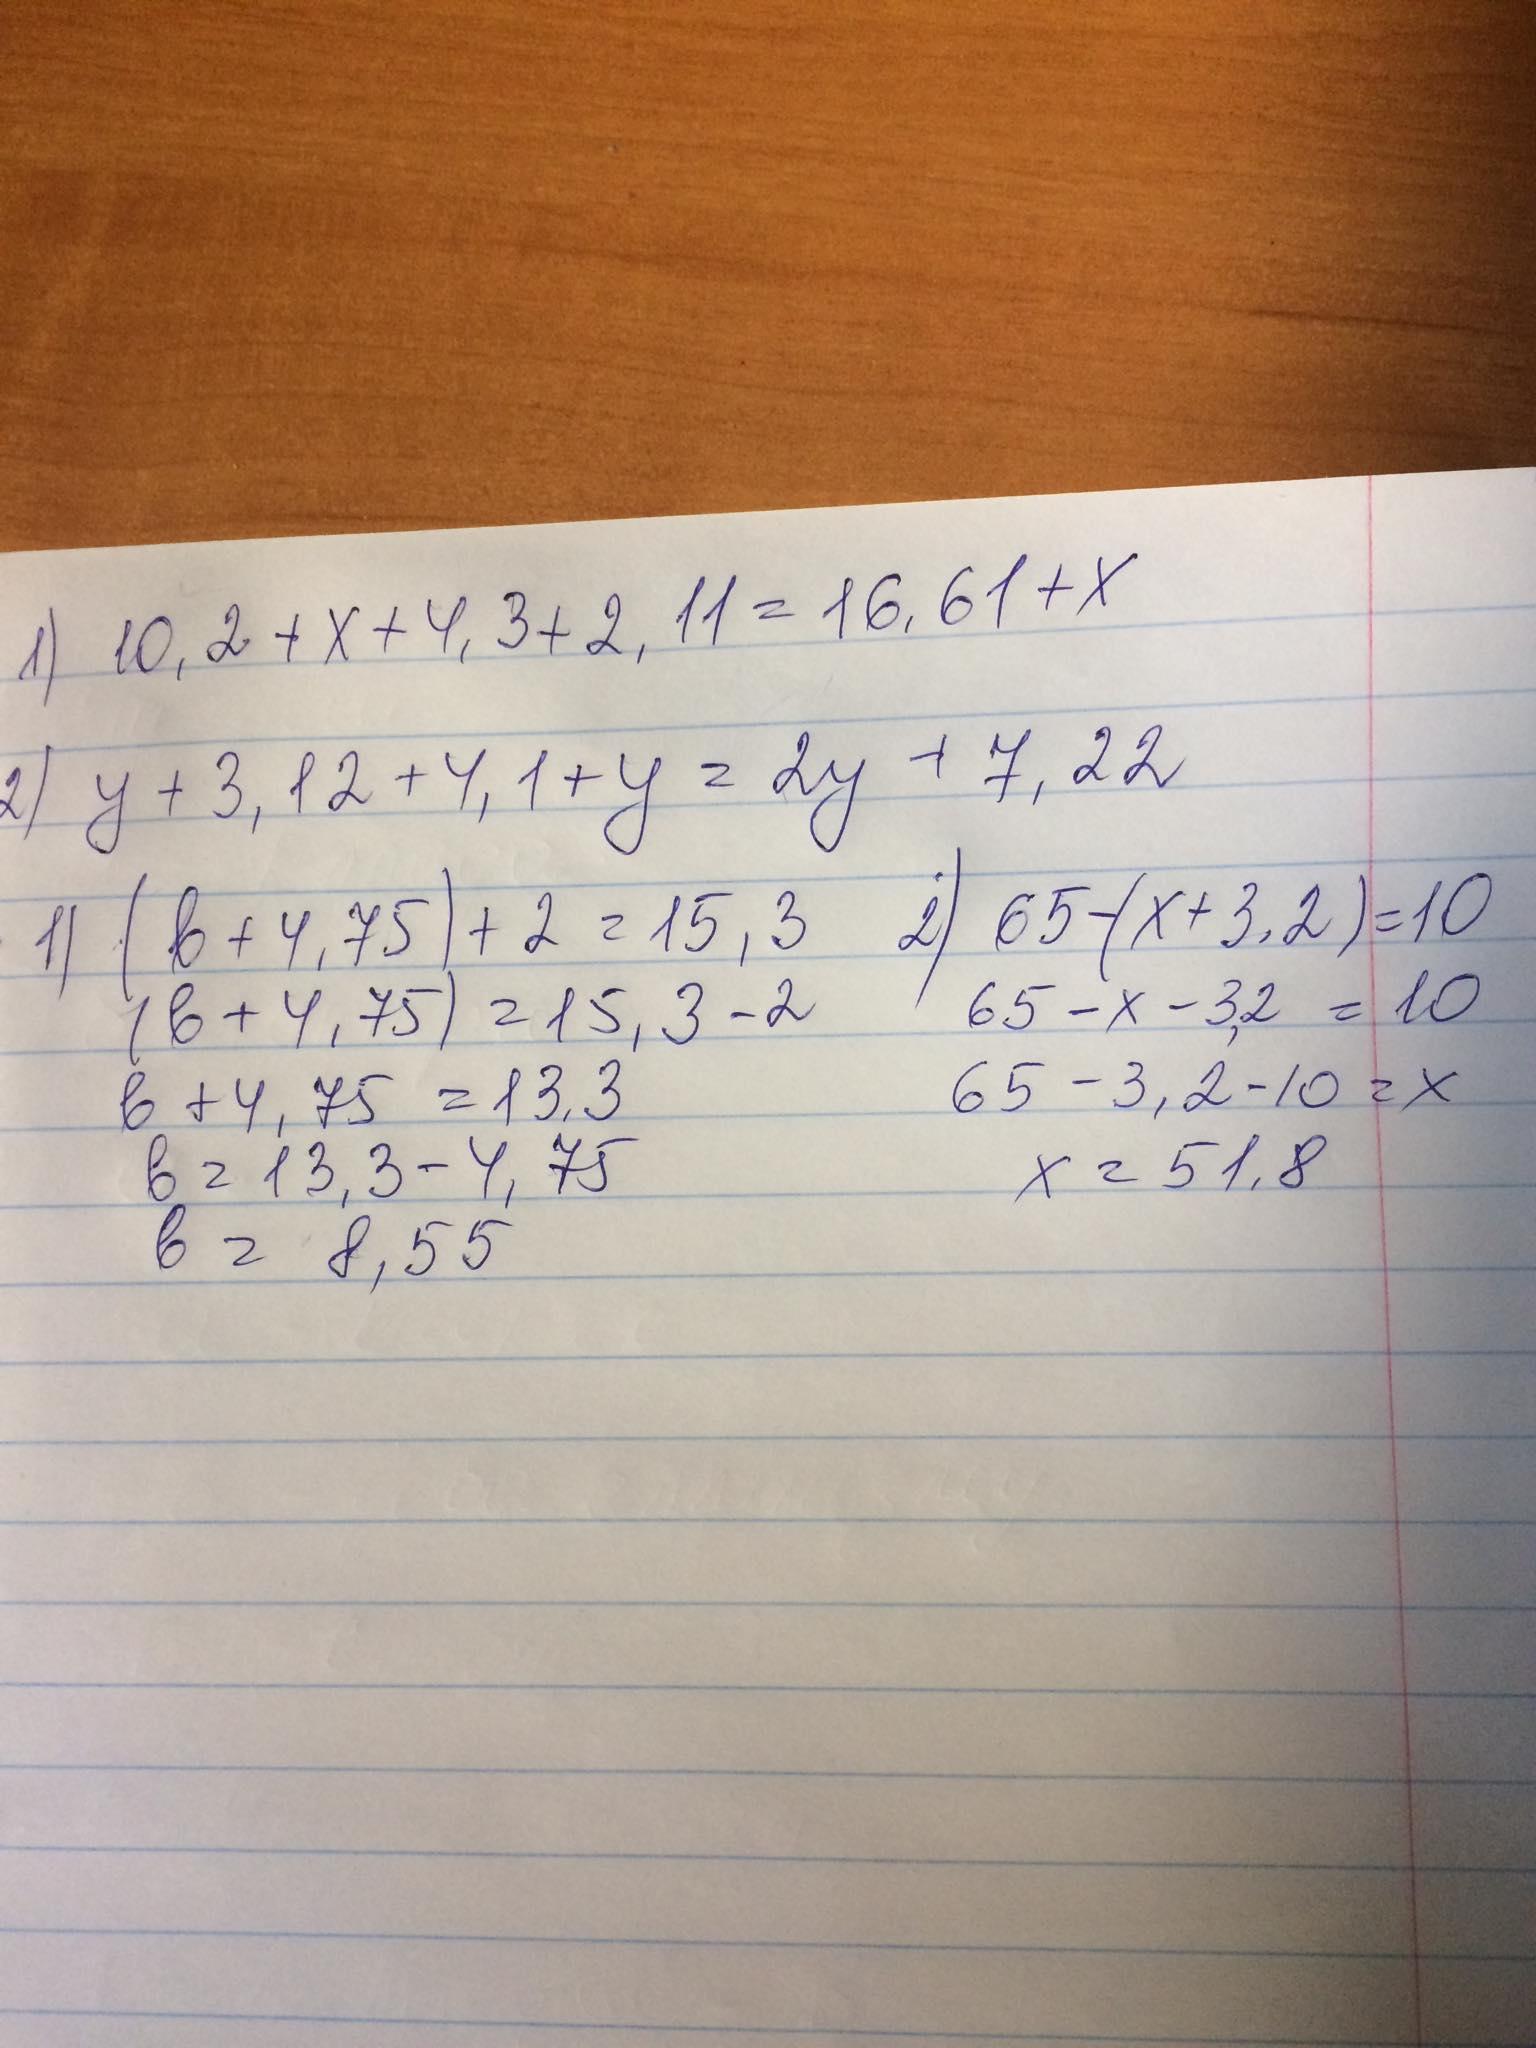 1) 10,2+x+4,3+2,11=16,61+x
2) y+3,12+4,1+y=2y+7,22
1) (в+4,75)+2=15,3
(в+4,75)=15,3-2
в+4,75=13,3
в=13,3-4,75
в=8,55
2) 65-(x+3,2)=10
65-x-3,2=10
65-3,2-10=x
x=51,8